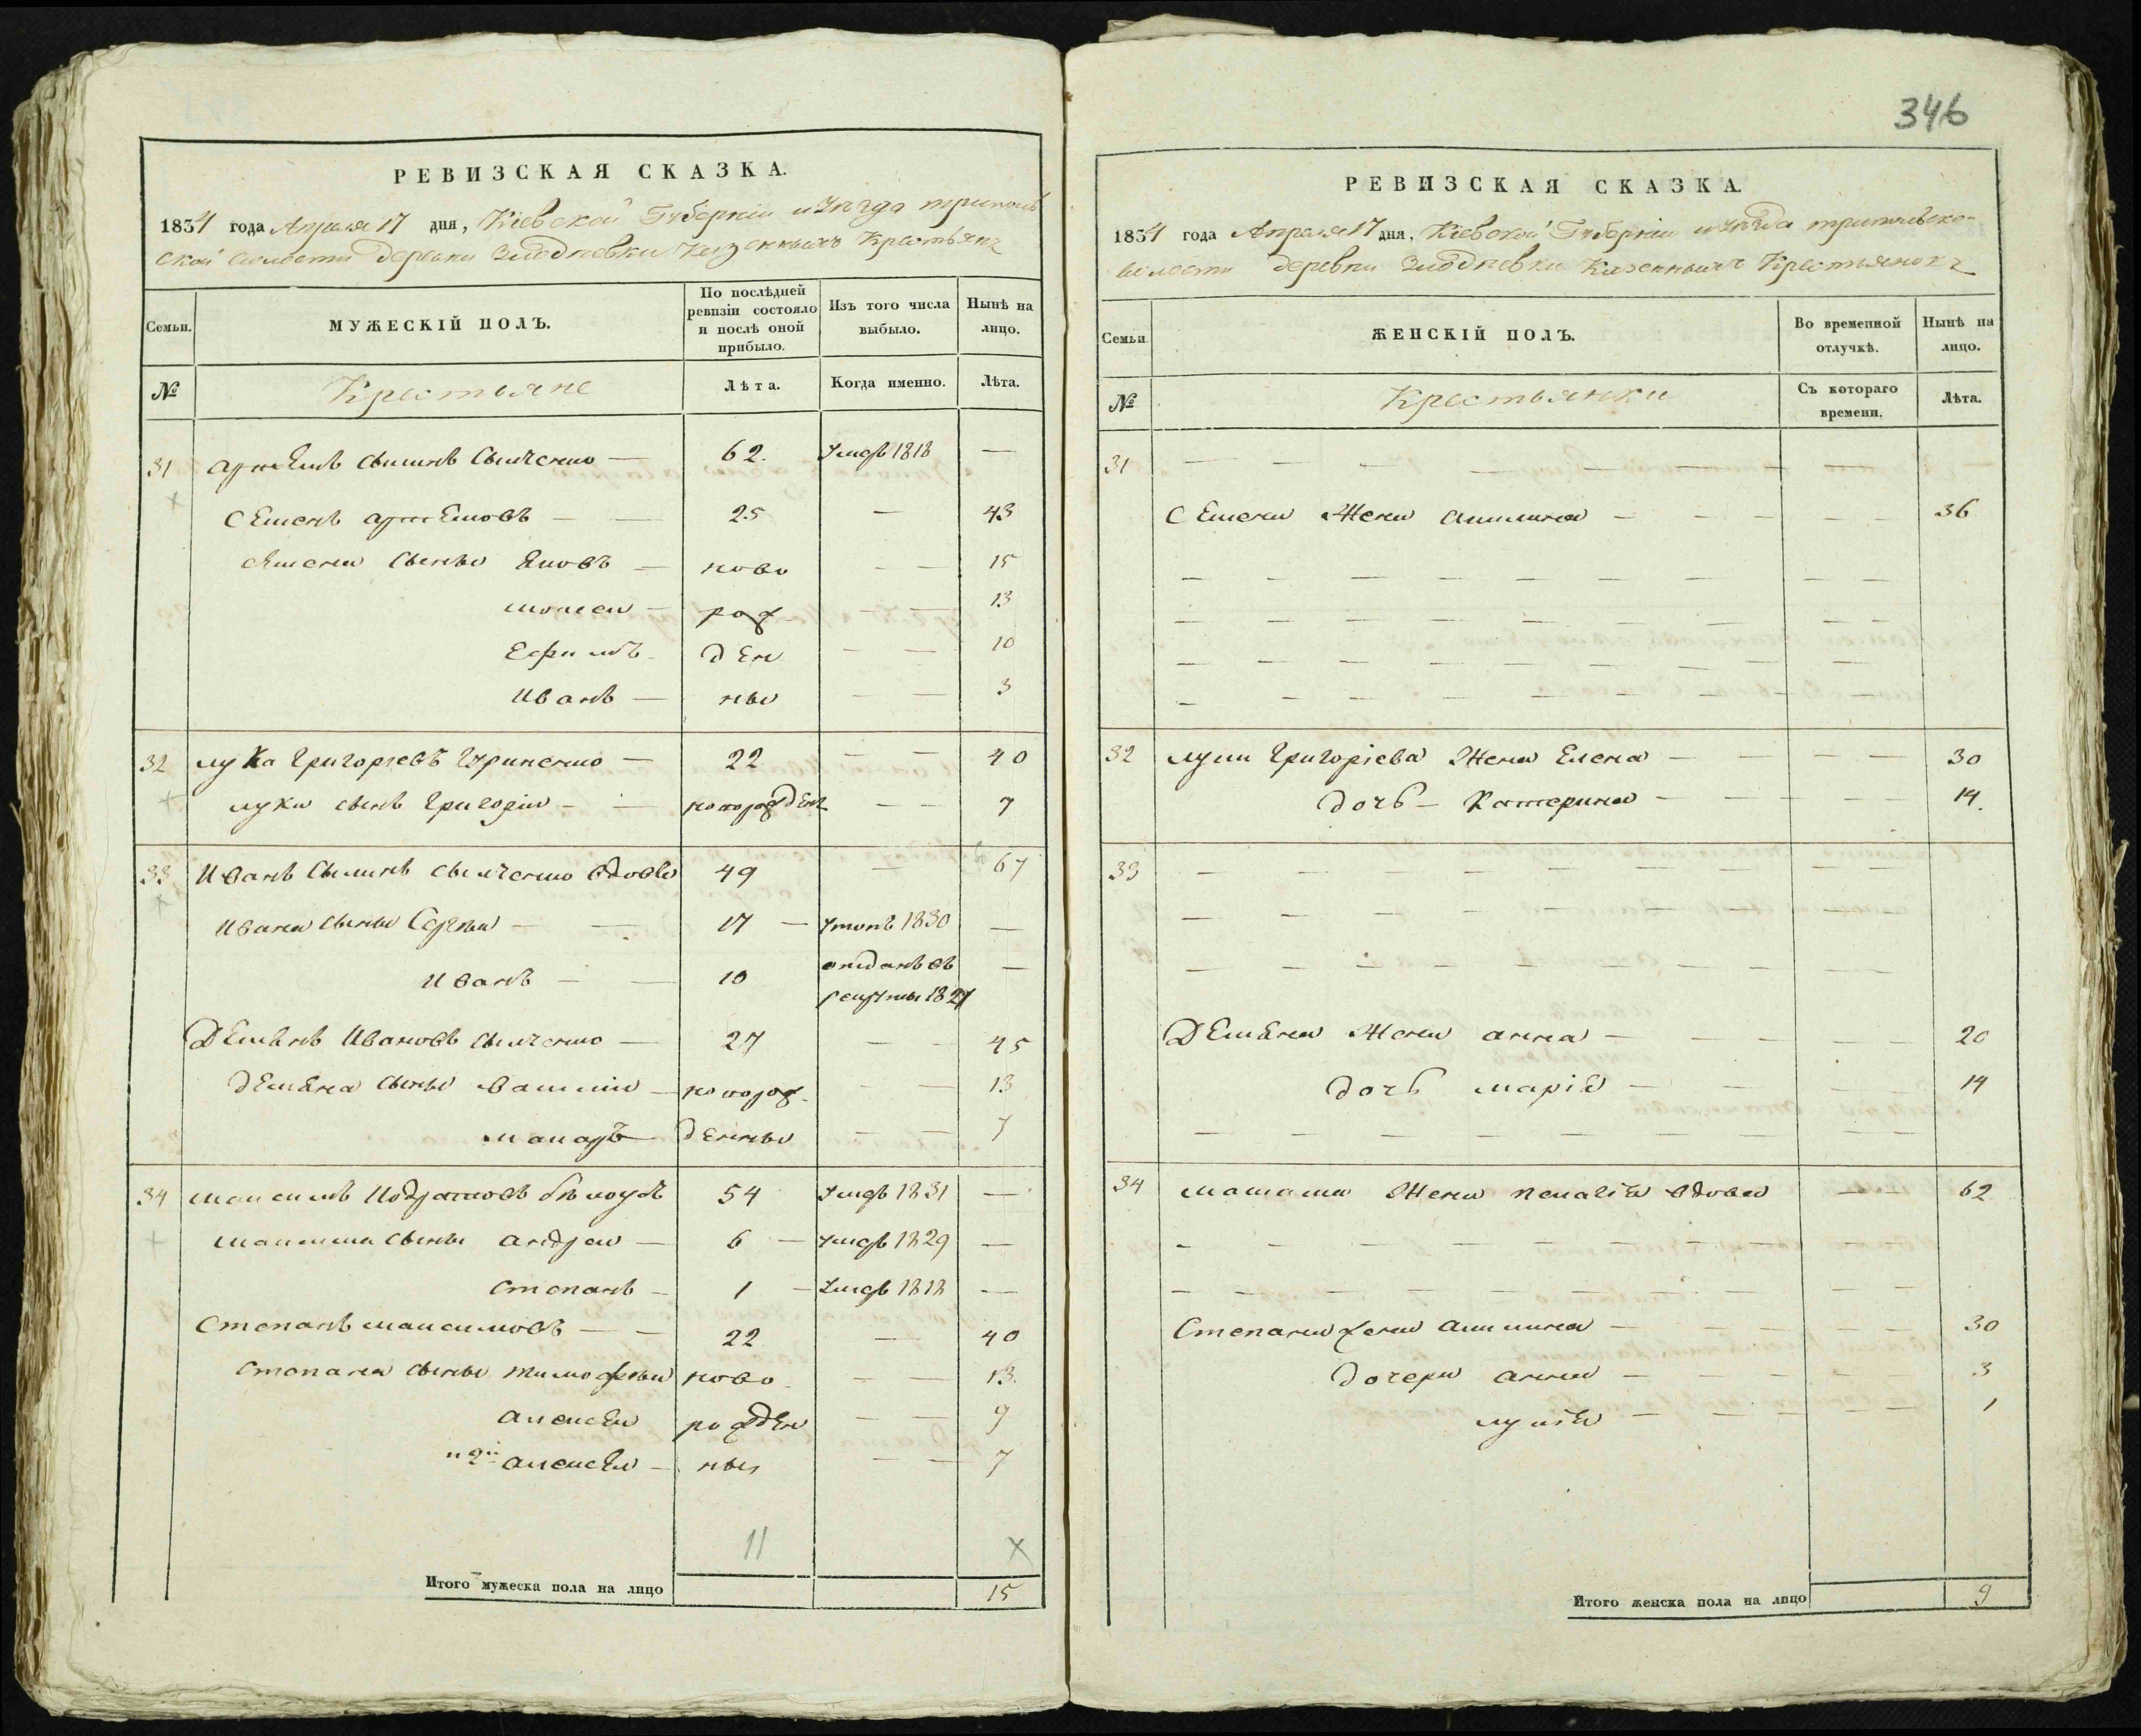 346
РЕВИЗСКАЯ СКАЗКА.
1834 года Апреля 17 дня, Кіевской Губерніи и Уезда триполь
ской волости деревни Злодневки Казенныхъ Крестьянъ
Семьи.
МУЖЕСКІЙ ПОЛЪ.
По послѣдней ревизіи состояло и послѣ оной прибыло.
Изъ того числа выбыло.
Нынѣ на лицо.
№
Крестьяне
Лѣта.
Когда именно.
Лѣта.
31 Артемъ 62. Умеръ 1818 —
Семенъ Артемовъ — — 25 — 43
Семена сыны Яковъ — ново — — 15
моисеи — рож — — 13
Ефимъ — ден — — 10
Иванъ — ны — — 3
32 лука Григоріевъ Гринченко — 22 — — 40
луки сынъ Григоріи — — новорожден — — 7
33 Иванъ вдовъ 49 — 67
Ивана сыны Сергѣи — — 17 — Умеръ 1830 —
Иванъ — — 10 отданъ въ —
рекруты 1827
Демянъ Ивановъ — 27 — — 45
демяна сыны василіи — новорож — — 13
макаръ — денны — — 7
34 максимъ 54 Умеръ 1831 —
максима сыны андреи — 6 — Умеръ 1829 —
степанъ — 1 — Умеръ 1818 —
Степанъ максимовъ — — 22 — 40
степана сыны тимофѣи ново — — 13.
алексеи рожден — — 9
и 2й алексеи — ны — — 7
11 X
Итого мужеска пола на лицо 15
РЕВИЗСКАЯ СКАЗКА.
1834 года Апреля 17 дня, Кіевской Губерніи и уезда трипольско-
волости деревни Злодневки Казенныхъ Крестьянокъ
Семьи
ЖЕНСКІЙ ПОЛЪ.
Во временной отлучкѣ.
Нынѣ на лицо.
№
Крестьянки
Съ котораго времени.
Лѣта.
31
Семена Жена акилина — 36
32 луки Григоріева Жена Елена — 30
дочь — Катерина — 14.
33
Демяна Жена анна — 20
дочь марія — 14
34 максима Жена пелагія вдова — 62
Степана жена акилина — 30
дочери анна — 3
лукія — 1
Итого женска пола на лицо 9